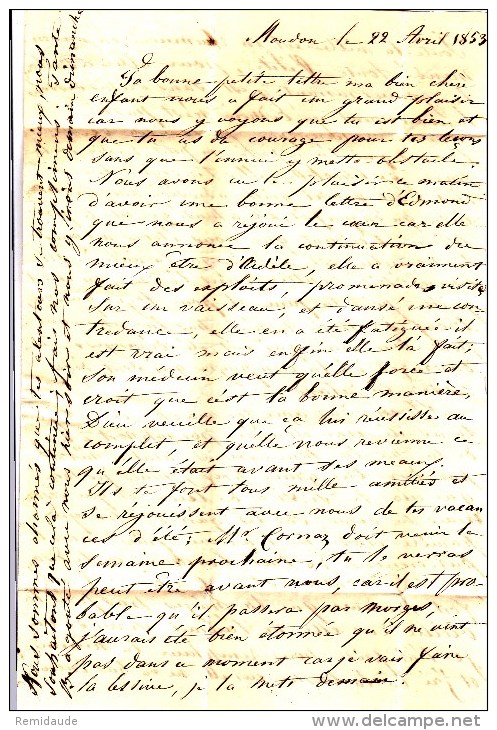 Moudon le 22 Avril 1853
Ta bonne petite lettre ma bien chère
enfant nous a fait un grand plaisir
car nous y voyons que tu est bien et
que tu as du courage pour tes leçons
sans que l'ennui y mette obstacle.
Nous avons eu le plaisir ce matin
d'avoir une bonne lettre d'Edmond
que nous a rejoué le cœur car elle
nous annonce la continuation du
mieux être d'Adèle, elle a vraiment
fait des exploits, promenade visite
sur un vaisseau, et dansé une con
tredanse, elle en a été fatiguée il
est vrai mais enfin elle l'a fait;
son médecin veut qu'elle force et
croit que c'est la bonne manière,
Dieu veuille que ça lui réussisse au
complet, et qu'elle nous revienne ce
qu'elle était avant ses meaux
Ils te font tous mille amitiés et
se rejouissent avec nous de tes vacan
ces d'été; Mr Cornaz doit venir la
semaine prochaine, tu le verras
peut être avant nous, car il est pro-
bable qu'il passera par Morges,
j'aurais été bien étonnée qu'il ne vint
pas dans ce moment car je vais faire
la lessive, je la mets demain.
Nous sommes charmés que tes se trouvent mieux, nous
souhaitons que cela continue, fais nos complimens
avec nous et nous y irons demain dimanche
Remidaude
www.delcampe.net